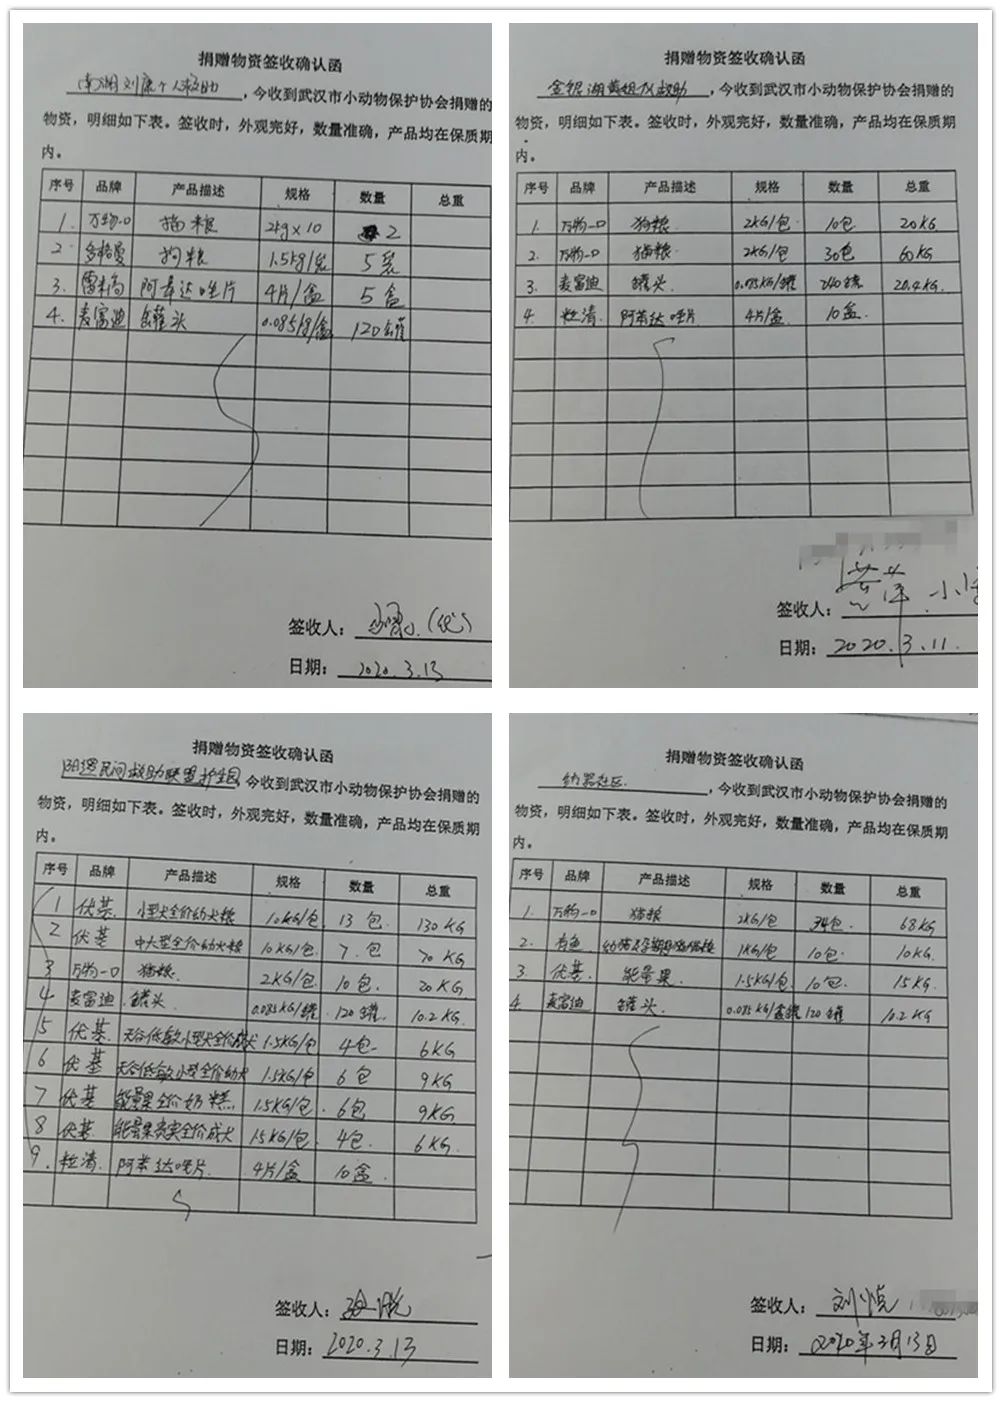 捐赠物资签收确认函
南湖刘康个人救助,今收到武汉市小动物保护协会捐赠的
物资,明细如下表。签收时,外观完好,数量准确,产品均在保质期
内。
序号 品牌 产品描述 规格 数量 总重
1. 万物一口 猫粮 2kg×10 2
2. 多格曼 狗粮 1.5kg/袋 5袋
3. 雷米高 阿苯达唑片 4片/盒 5盒
4. 麦富迪 罐头 120罐
签收人: (代)
日期: 2020.3.13
捐赠物资签收确认函
金银湖黄姐 救助,今收到武汉市小动物保护协会捐赠的
物资,明细如下表。签收时,外观完好,数量准确,产品均在保质期
内。
序号 品牌 产品描述 规格 数量 总重
1. 万物一口 狗粮. 2KG/包 10包 20KG
2. 万物一口 猫粮. 2KG/包 30包 60KG
3. 麦富迪 罐头. 0.085KG/罐 240罐 20.4KG
4. 粒清. 阿苯达唑片 4片/盒 10盒.
签收人:
日期: 2020.3.11
捐赠物资签收确认函
民间救助联盟护生园,今收到武汉市小动物保护协会捐赠的
物资,明细如下表。签收时,外观完好,数量准确,产品均在保质期
内。
序号 品牌 产品描述 规格 数量 总重
1 伏基. 小型犬全价幼犬粮 10KG/包 13包. 130KG
2 伏基 中大型全价幼犬粮 10KG/包 7.包 70KG
3 万物一口 猫粮. 2KG/包 10包. 20KG
4 麦富迪 罐头. 0.085KG/罐 120罐. 10.2KG
5 伏基 无谷低敏小型犬全价成犬 1.5KG/包 4包 6KG
6 伏基 无谷低敏小型全价幼犬 1.5KG/包 6包 9KG
7 伏基 能量果全价奶糕. 1.5KG/包. 6包 9KG
8 伏基. 能量果 全价成犬 1.5KG/包. 4包. 6KG.
9. 粒清. 阿苯达唑片. 4片/盒 10盒.
签收人:
日期: 2020.3.13
捐赠物资签收确认函
社区.,今收到武汉市小动物保护协会捐赠的
物资,明细如下表。签收时,外观完好,数量准确,产品均在保质期
内。
序号 品牌 产品描述 规格 数量 总重
1. 万物一口 猫粮. 2KG/包 34包. 68KG
2. 有鱼 1KG/包 10包. 10KG.
3 伏基. 能量果. 1.5KG/包 10包. 15KG.
4. 麦富迪 罐头. 0.085KG/罐 120罐 10.2KG
签收人: 刘悦
日期: 2020年3月13日